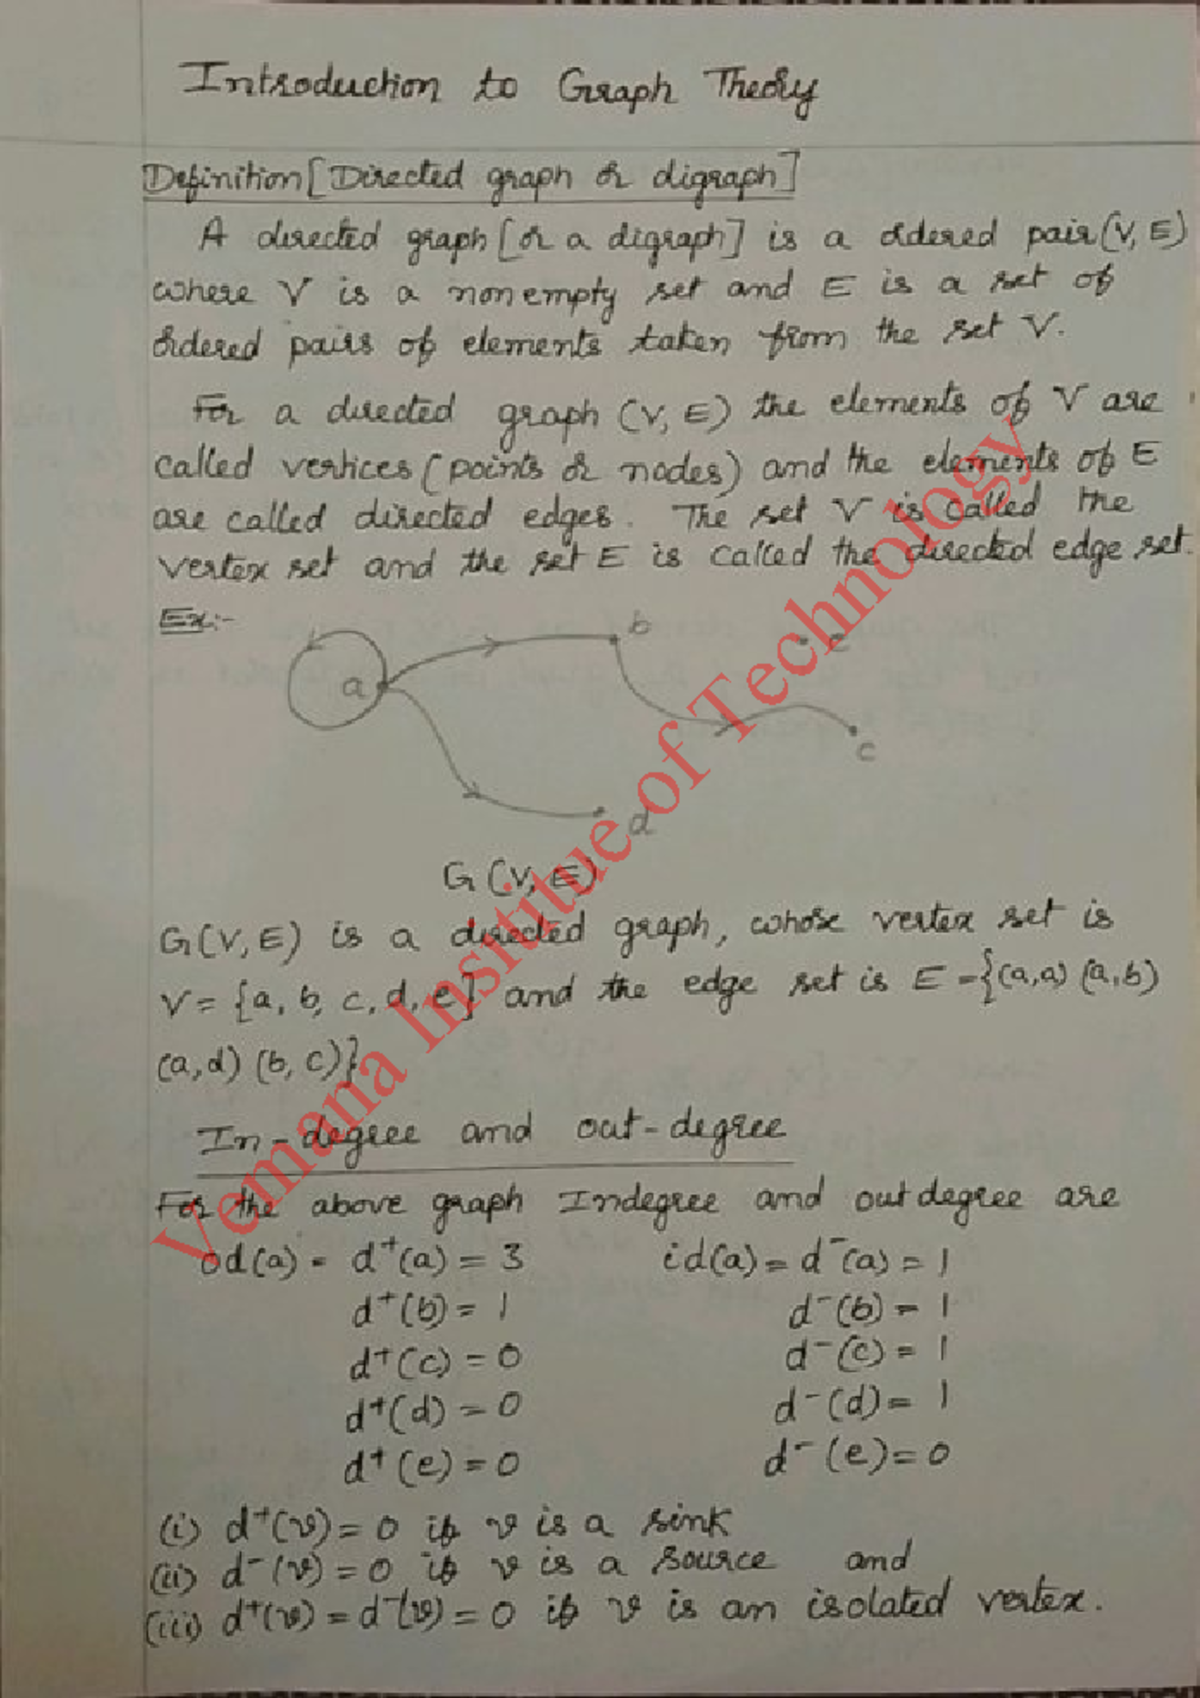 Introduction to Graph Theory
Definition [Directed graph or digraph]
A directed graph [or a digraph] is a ordered pair (V, E)
where V is a non empty set and E is a set of
ordered pairs of elements taken from the set V.
For a directed graph (V, E) the elements of V are
called vertices (points or nodes) and the elements of E
are called directed edges. The set V is called the
vertex set and the set E is called the directed edge set.
Ex:-
b
e
a
c
d
G (V, E)
G(V, E) is a directed graph, whose vertex set is
V = {a, b, c, d, e} and the edge set is E = {(a,a) (a,b)
(a,d) (b, c)}
In-degree and out-degree
For the above graph Indegree and outdegree are
od(a) = d⁺(a) = 3 id(a) = d⁻(a) = 1
d⁺(b) = 1 d⁻(b) = 1
d⁺(c) = 0 d⁻(c) = 1
d⁺(d) = 0 d⁻(d) = 1
d⁺(e) = 0 d⁻(e) = 0
(i) d⁺(v) = 0 if v is a sink
(ii) d⁻(v) = 0 if v is a source and
(iii) d⁺(v) = d⁻(v) = 0 if v is an isolated vertex.
Vemana Institue of Technology